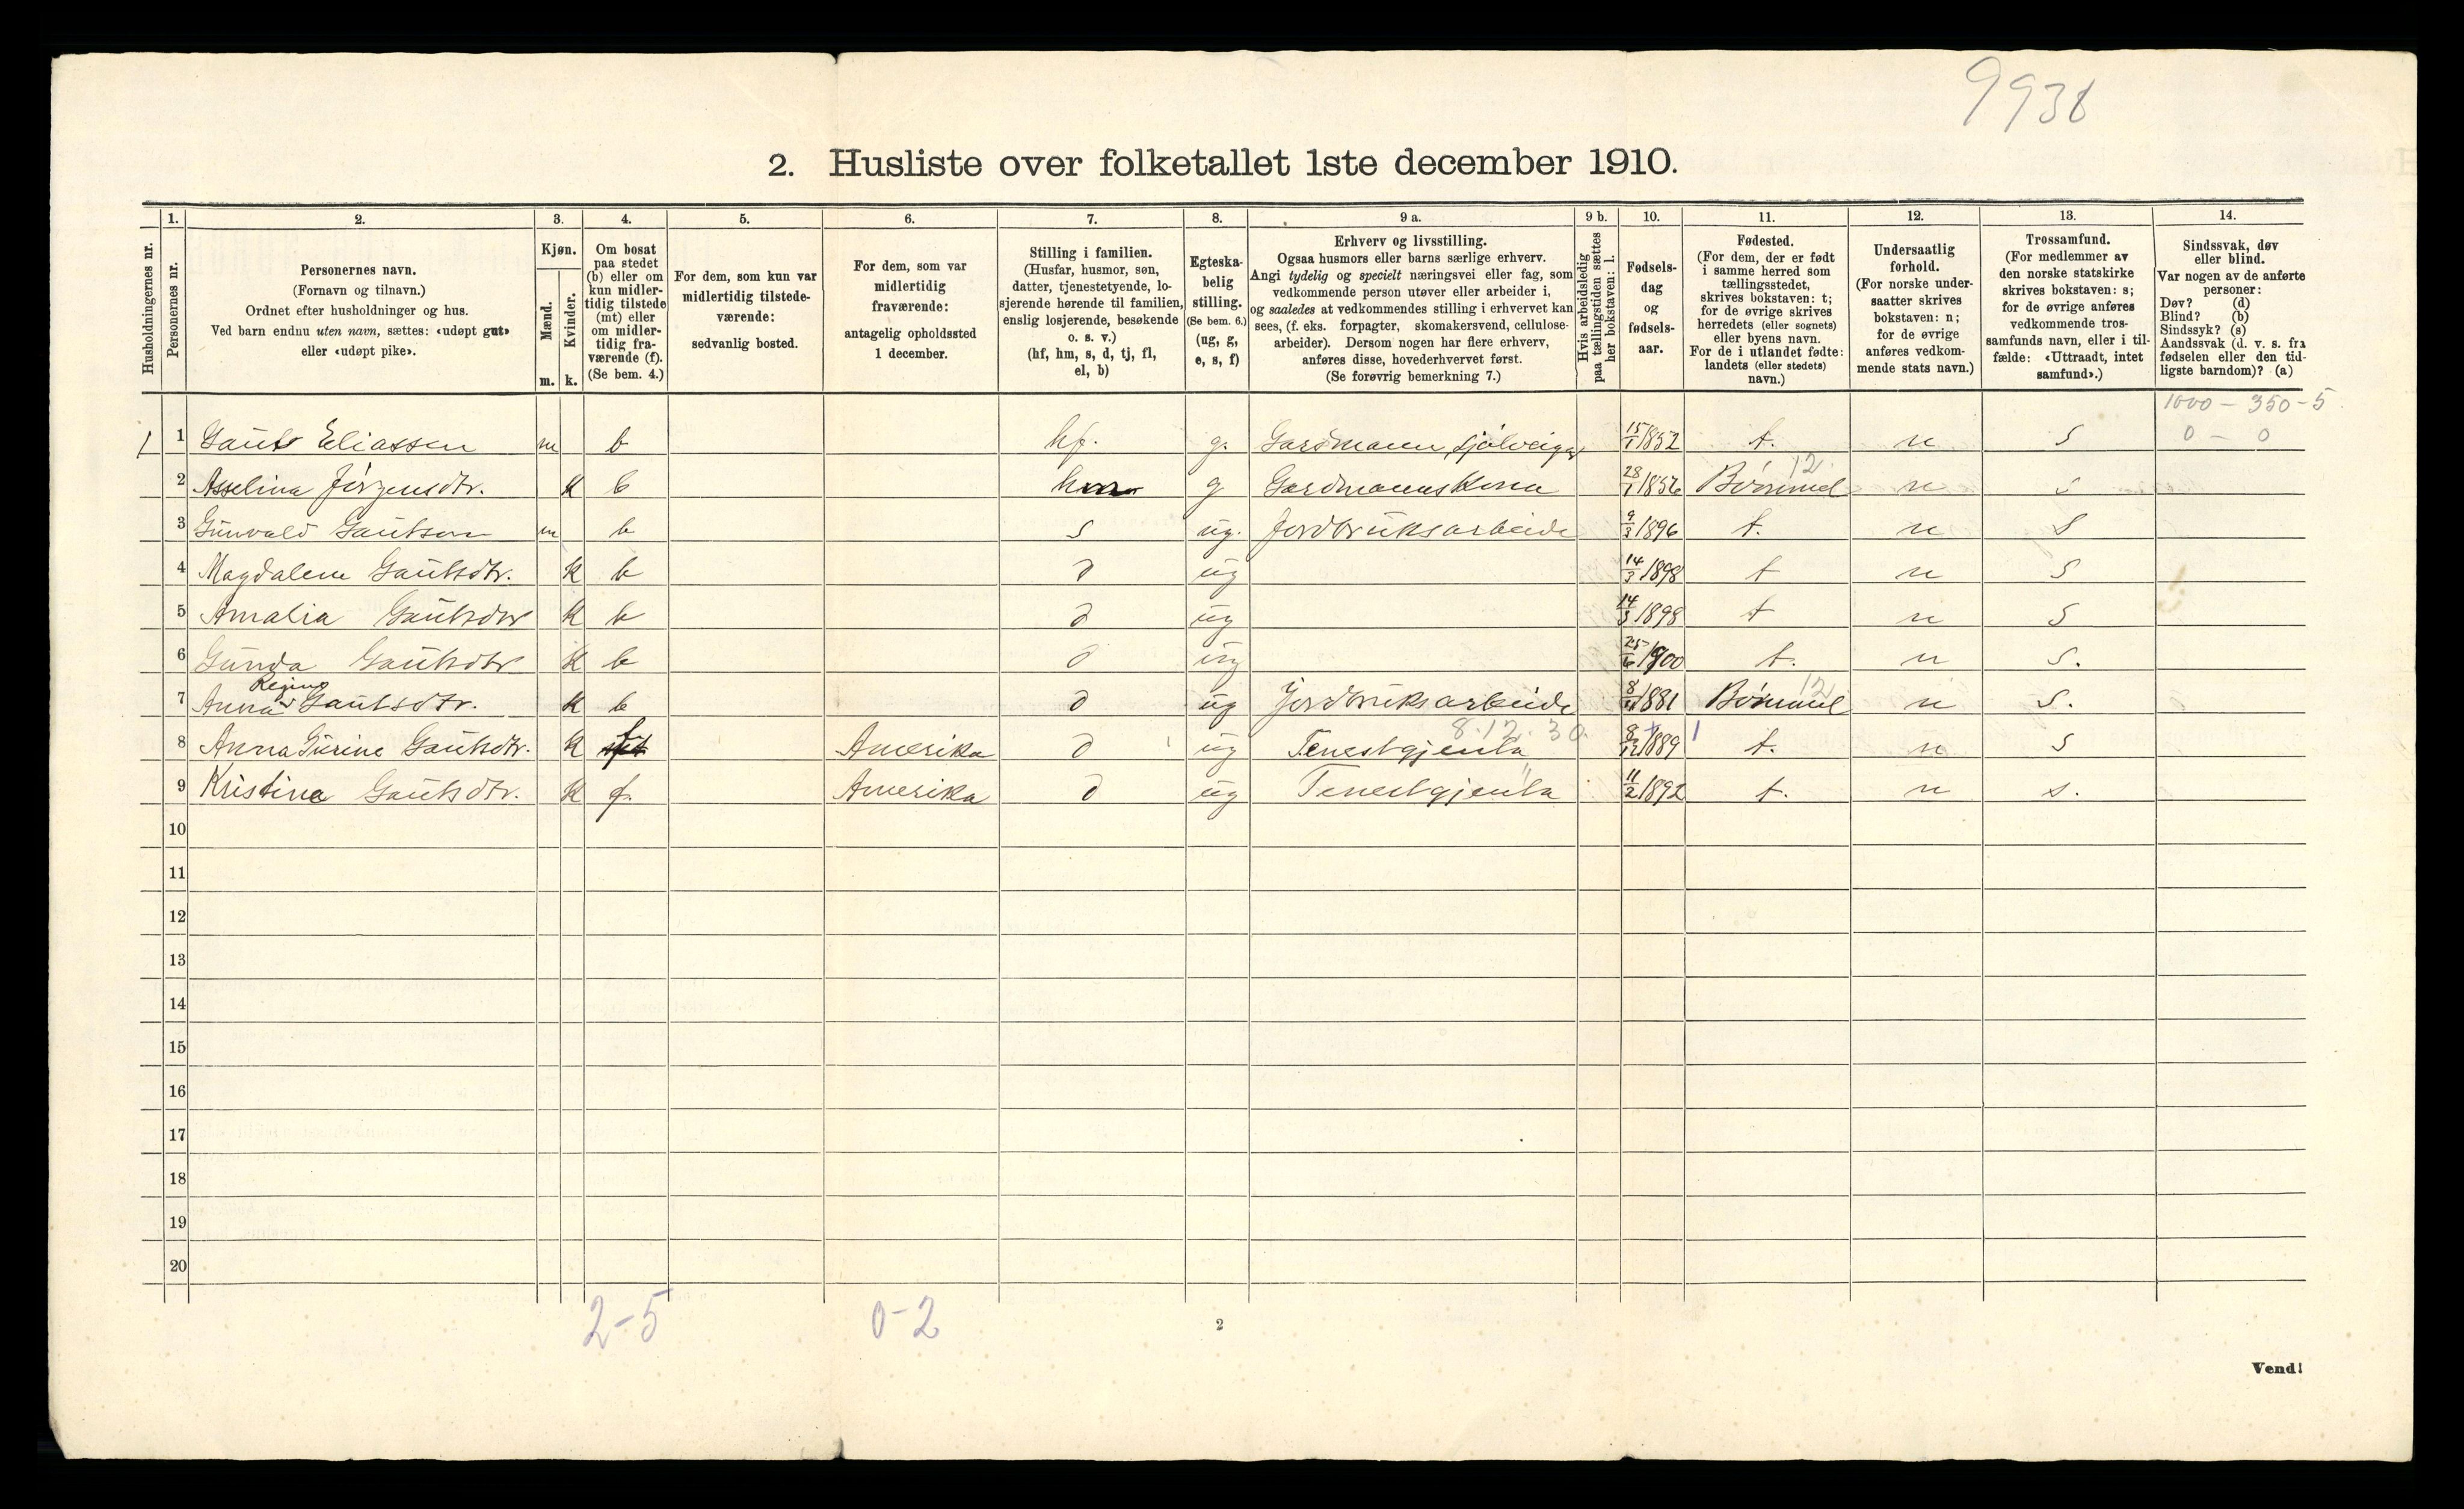 9938
2. Husliste over folketallet 1ste december 1910.
Husholdningernes nr.
1.
Personernes nr.
2.
Personernes navn.
(Fornavn og tilnavn.)
Ordnet efter husholdninger og hus.
Ved barn endnu uten navn, sættes: «udøpt gut»
eller «udøpt pike».
3.
Kjøn.
Mænd.
m.
Kvinder.
k.
4.
Om bosat
paa stedet
(b) eller om
kun midler-
tidig tilstede
(mt) eller
om midler-
tidig fra-
værende (f).
(Se bem. 4.)
5.
For dem, som kun var
midlertidig tilstede-
værende:
sedvanlig bosted.
6.
For dem, som var
midlertidig
fraværende:
antagelig opholdssted
1 december.
7.
Stilling i familien.
(Husfar, husmor, søn,
datter, tjenestetyende, lo-
sjerende hørende til familien,
enslig losjerende, besøkende
o. s. v.)
(hf, hm, s, d, tj, fl,
el, b)
8.
Egteska-
belig
stilling.
(Se bem. 6.)
(ug, g,
e, s, f)
9 a.
Erhverv og livsstilling.
Ogsaa husmors eller barns særlige erhverv.
Angi tydelig og specielt næringsvei eller fag, som
vedkommende person utøver eller arbeider i,
og saaledes at vedkommendes stilling i erhvervet kan
sees, (f. eks. forpagter, skomakersvend, cellulose-
arbeider). Dersom nogen har flere erhverv,
anføres disse, hovederhvervet først.
(Se forøvrig bemerkning 7.)
9 b.
Hvis arbeidsledig
paa tællingstiden sættes
her bokstaven: l.
10.
Fødsels-
dag
og
fødsels-
aar.
11.
Fødested.
(For dem, der er født
i samme herred som
tællingsstedet,
skrives bokstaven: t;
for de øvrige skrives
herredets (eller sognets)
eller byens navn.
For de i utlandet fødte:
landets (eller stedets)
navn.)
12.
Undersaatlig
forhold.
(For norske under-
saatter skrives
bokstaven: n;
for de øvrige
anføres vedkom-
mende stats navn.)
13.
Trossamfund.
(For medlemmer av
den norske statskirke
skrives bokstaven: s;
for de øvrige anføres
vedkommende tros-
samfunds navn, eller i til-
fælde: «Uttraadt, intet
samfund».)
14.
Sindssvak, døv
eller blind.
Var nogen av de anførte
personer:
Døv? (d)
Blind? (b)
Sindssyk? (s)
Aandssvak (d. v. s. fra
fødselen eller den tid-
ligste barndom)? (a)
1000 - 350 - 5
1 1 Gaut Eliassen m b hf. g. Gardmann, sjølveigar 15/1 1852 t. n s 0 - 0
12
2 Asselina Jørgensdtr. k b hm g Gardmannskona 28/1 1856 Bømmel n s
3 Gunvald Gautson m b s ug. Jordbruksarbeide 9/3 1896 t. n s
4 Magdalena Gautsdtr. k b d ug 14/3 1898 t n s
5 Amalia Gautsdtr k b d ug 14/3 1898 t n s
6 Gunda Gautsdtr k b d ug 25/6 1900 t. n s.
Regine 12
7 Anna Gautsdtr. k b d ug Jordbruksarbeide 1881 Bømmel n s.
8.12.30
8 Anna Gurine Gautsdtr. k f Amerika d ug Tenestgjenta 8/12 1889 t. n s
9 Kristina Gautsdtr. k f. Amerika d ug Tenestgjenta 11/2 1892 t. n s.
10
11
12
13
14
15
16
17
18
19
20
2-5 0-2
2
Vend!